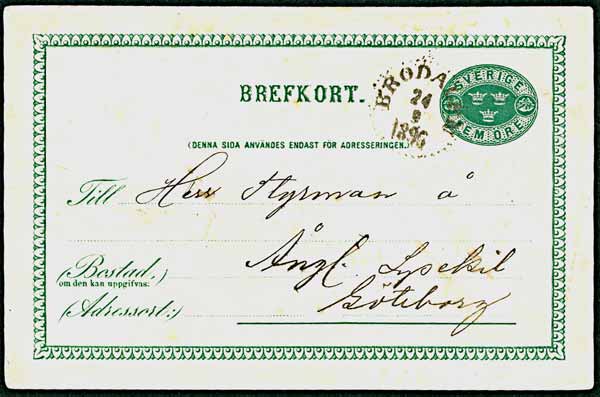 BREFKORT.
SVERIGE
FEM ÖRE
BRODALEN
24
9
1896
(DENNA SIDA ANVÄNDES ENDAST FÖR ADRESSERINGEN.)
Till Herr Styrman å
Ångf. Lysekil
(Bostad,)
om den kan uppgifvas:
Göteborg
(Adressort:)